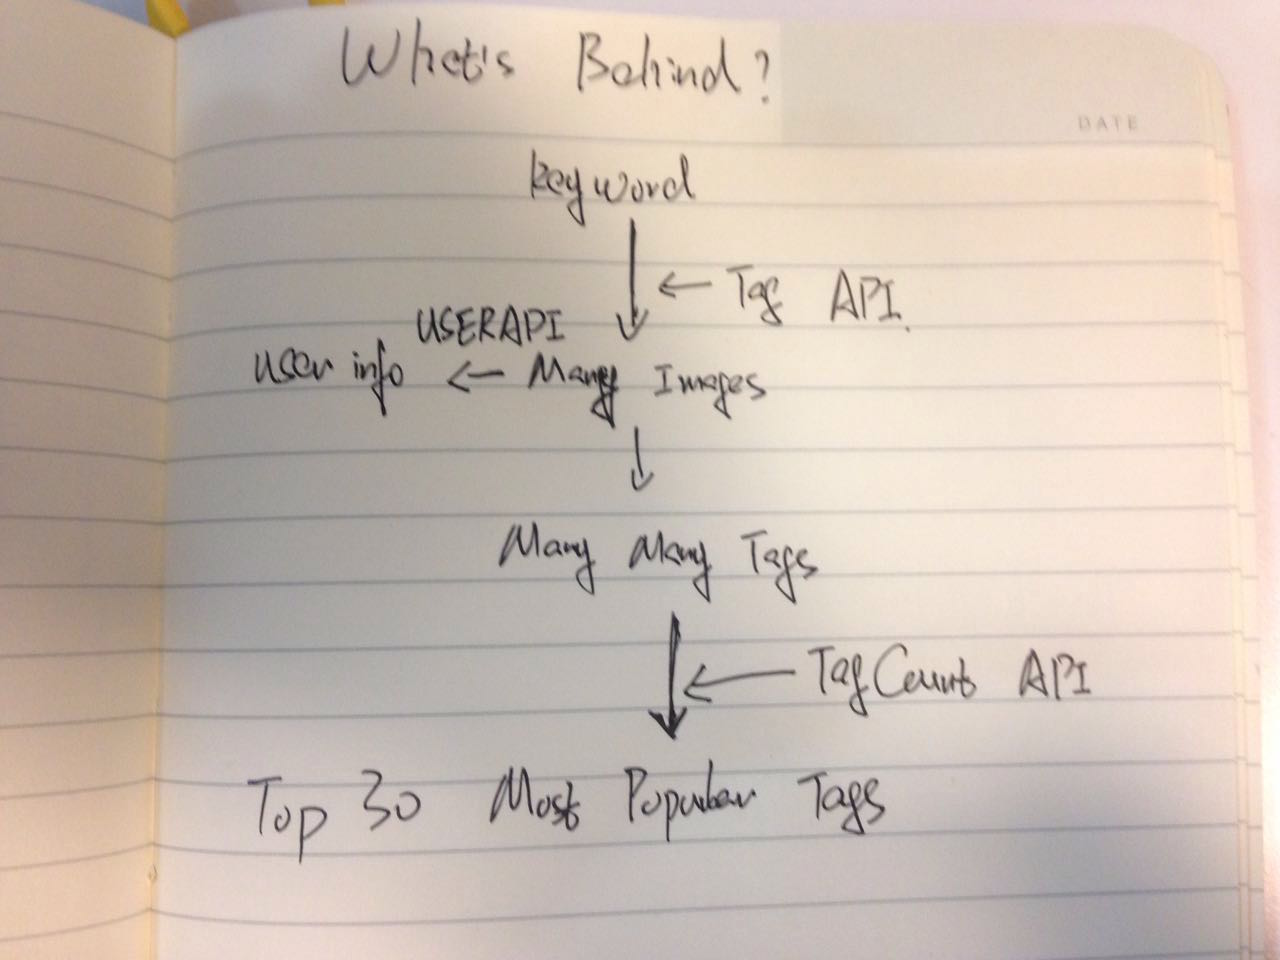 What's Behind?
DATE
keyword
← Tag API.
USERAPI
user info ← Many Images
Many Many Tags
← Tag Count API
Top 30 Most Popular Tags